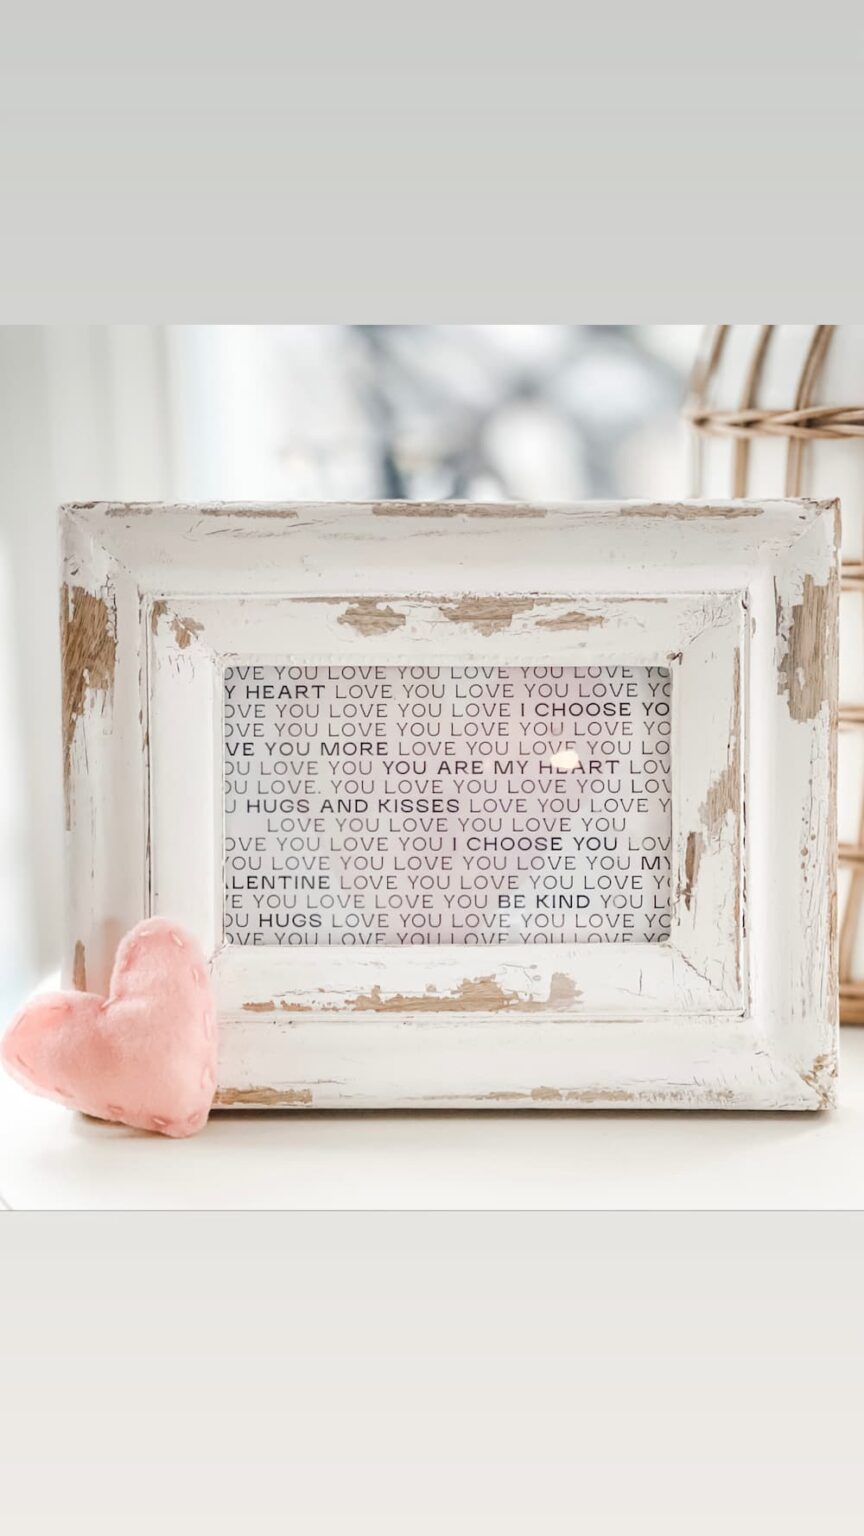 OVE YOU LOVE YOU LOVE YOU LOVE YO
Y HEART LOVE YOU LOVE YOU LOVE YO
OVE YOU LOVE YOU LOVE I CHOOSE YO
OVE YOU LOVE YOU LOVE YOU LOVE YO
VE YOU MORE LOVE YOU LOVE YOU LO
OU LOVE YOU YOU ARE MY HEART LOV
OU LOVE. YOU LOVE YOU LOVE YOU LOVE
U HUGS AND KISSES LOVE YOU LOVE Y
LOVE YOU LOVE YOU LOVE YOU
OVE YOU LOVE YOU I CHOOSE YOU LOV
YOU LOVE YOU LOVE YOU LOVE YOU MY
ALENTINE LOVE YOU LOVE YOU LOVE YO
VE YOU LOVE YOU LOVE YOU BE KIND YOU L
OU HUGS LOVE YOU LOVE YOU LOVE YO
OVE YOU LOVE YOU LOVE YOU LOVE YO